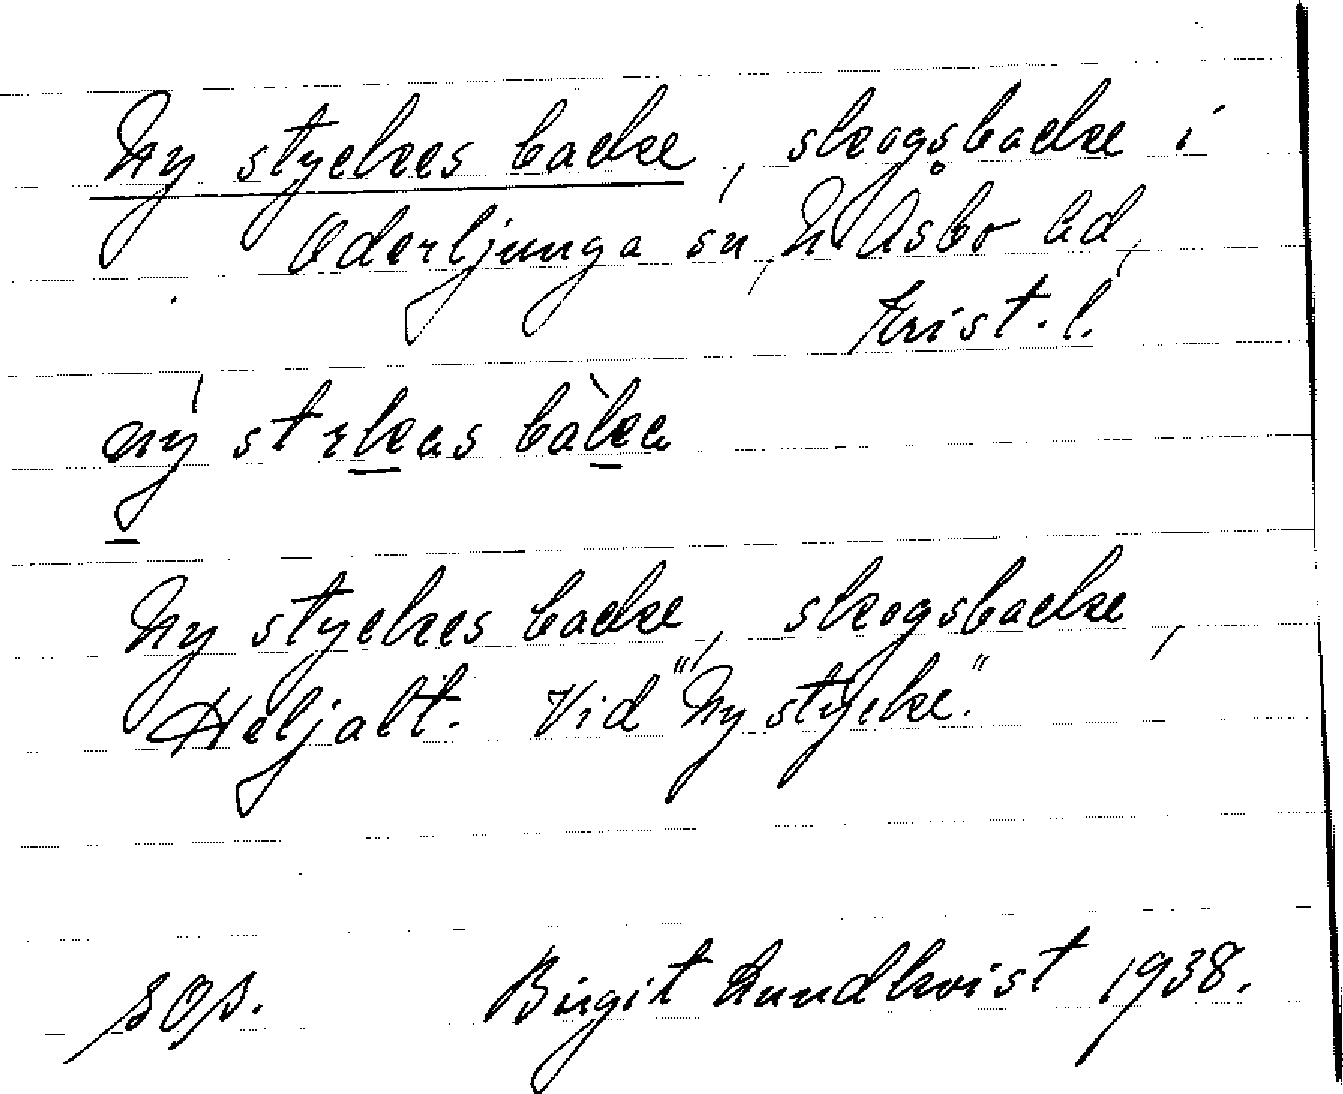 Ny styckes backe, skogsbacke i
Oderljunga sn, N. Åsbo hd,
Krist. l.
Ny styckes backe, skogsbacke,
Heljalt. Vid "Ny stycke".
Birgit Lundkvist 1938.